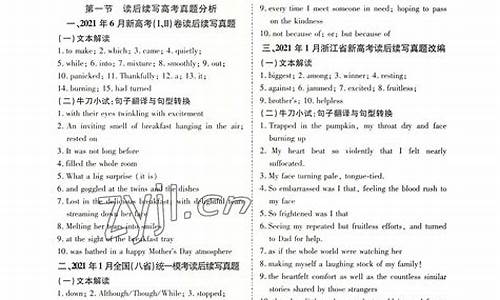 第一节 读后续写高考真题分析
一、2021 年 6 月新高考(Ⅰ,Ⅱ)卷读后续写真题
(一)文本解读
1. to make; 2. which; 3. came; 4. quietly;
5. while; 6. into; 7. mixture; 8. smoothly; 9. out;
10. panicked; 11. Thankfully; 12. a; 13. it;
14. burning; 15. had turned
(二)牛刀小试:句子翻译与句型转换
1. with their eyes twinkling with excitement
2. An inviting smell of breakfast hanging in the air;
rested on
3. It was not long before
4. filled the whole room
5. What a big surprise (it is)
6. and goggled at the twins and the dishes
7. Lost in the delicious breakfast, with delightful tears
streaming down her face
8. Melting her tears into smiles
9. at the sight of the breakfast tray
10. was bathed in a happy Mother's Day atmosphere
二、2021 年 1 月全国(八省)统一模考读后续写真题
(一)文本解读
1. down; 2. Although/Though/While; 3. stopped;
9. every time I meet someone in need; hoping to pass
on the kindness
10. not because of; or; but because of
三、2021 年 1 月浙江省新高考读后续写真题改编
(一)文本解读
1. biggest; 2. among; 3. winner; 4. resting;
5. against; 6. jammed; 7. excited; 8. fruitless;
9. brother's; 10. helpless
(二)牛刀小试:句子翻译与句型转换
1. Trapped in the pumpkin, my throat dry and face
burning up
2. My heart beat so violently that I felt nearly
suffocated.
3. My face turning pale, tongue-tied.
4. So embarrassed was I that, feeling the blood rush to
my face
5. So frightened was I that
6. Seeing my repeated but fruitless efforts, and turned
to Dad for help.
7. as if the whole world were watching her
8. making myself a laughing stock of my family!
9. the heartfelt comfort as well as the countless similar
stories shared by those strangers